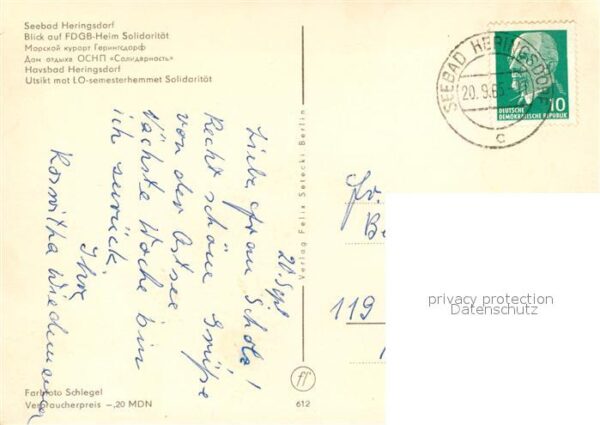 Seebad Heringsdorf
Blick auf FDGB-Heim Solidarität
Морской курорт Герингсдорф
Дом отдыха ОСНП «Солидарность»
Havsbad Heringsdorf
Utsikt mot LO-semesterhemmet Solidarität
SEEBAD HERINGSDORF
20.9.65
c
10
DEUTSCHE
DEMOKRATISCHE REPUBLIK
20 Sept
Liebe Frau Scholz!
Recht schöne Grüße
von der Ostsee
Nächste Woche bin
ich zurück.
Ihre
Roswitha Wiedemann
Verlag Felix Setecki Berlin
Fr.
Be
119
privacy protection
Datenschutz
Farbfoto Schlegel
Verbraucherpreis –,20 MDN
612